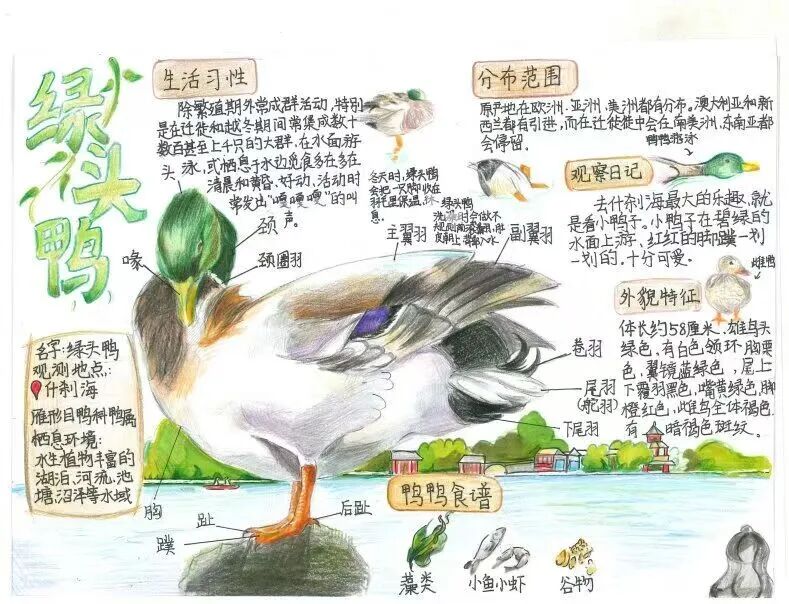 绿头鸭
生活习性
除繁殖期外常成群活动,特别
是在迁徙和越冬期间常集成数十
数百甚至上千只的大群。在水面游
泳,或栖息于水边觅食多在多在
清晨和黄昏,好动,活动时
常发出“嘎嘎嘎”的叫
声。
冬天时,绿头鸭
会把一只脚收在
羽毛里保温,休
息。
绿头鸭
洗澡时会做不
分布范围
原产地在欧洲、亚洲、美洲都有分布。澳大利亚和新
西兰都有引进,而在迁徙徒中会在南美洲、东南亚都
会停留。
鸭鸭游泳
观察日记
去什刹海最大的乐趣,就
是看小鸭子。小鸭子在碧绿的
水面上游、红红的脚蹼一划
一划的,十分可爱。
雌鸭
外貌特征
体长约58厘米,雄鸟头
绿色,有白色领环,胸栗
色,翼镜蓝绿色,尾上
下覆羽黑色,嘴黄绿色,脚
橙红色,雌鸟全体褐色,
有暗褐色斑纹。
头
颈
喙
颈圈羽
主翼羽
副翼羽
卷羽
尾羽
(舵羽)
下尾羽
胸
趾
蹼
后趾
名字:绿头鸭
观测地点:
什刹海
雁形目鸭科鸭属
栖息环境:
水生植物丰富的
湖泊、河流、池
塘、沼泽等水域
鸭鸭食谱
藻类
小鱼小虾
谷物